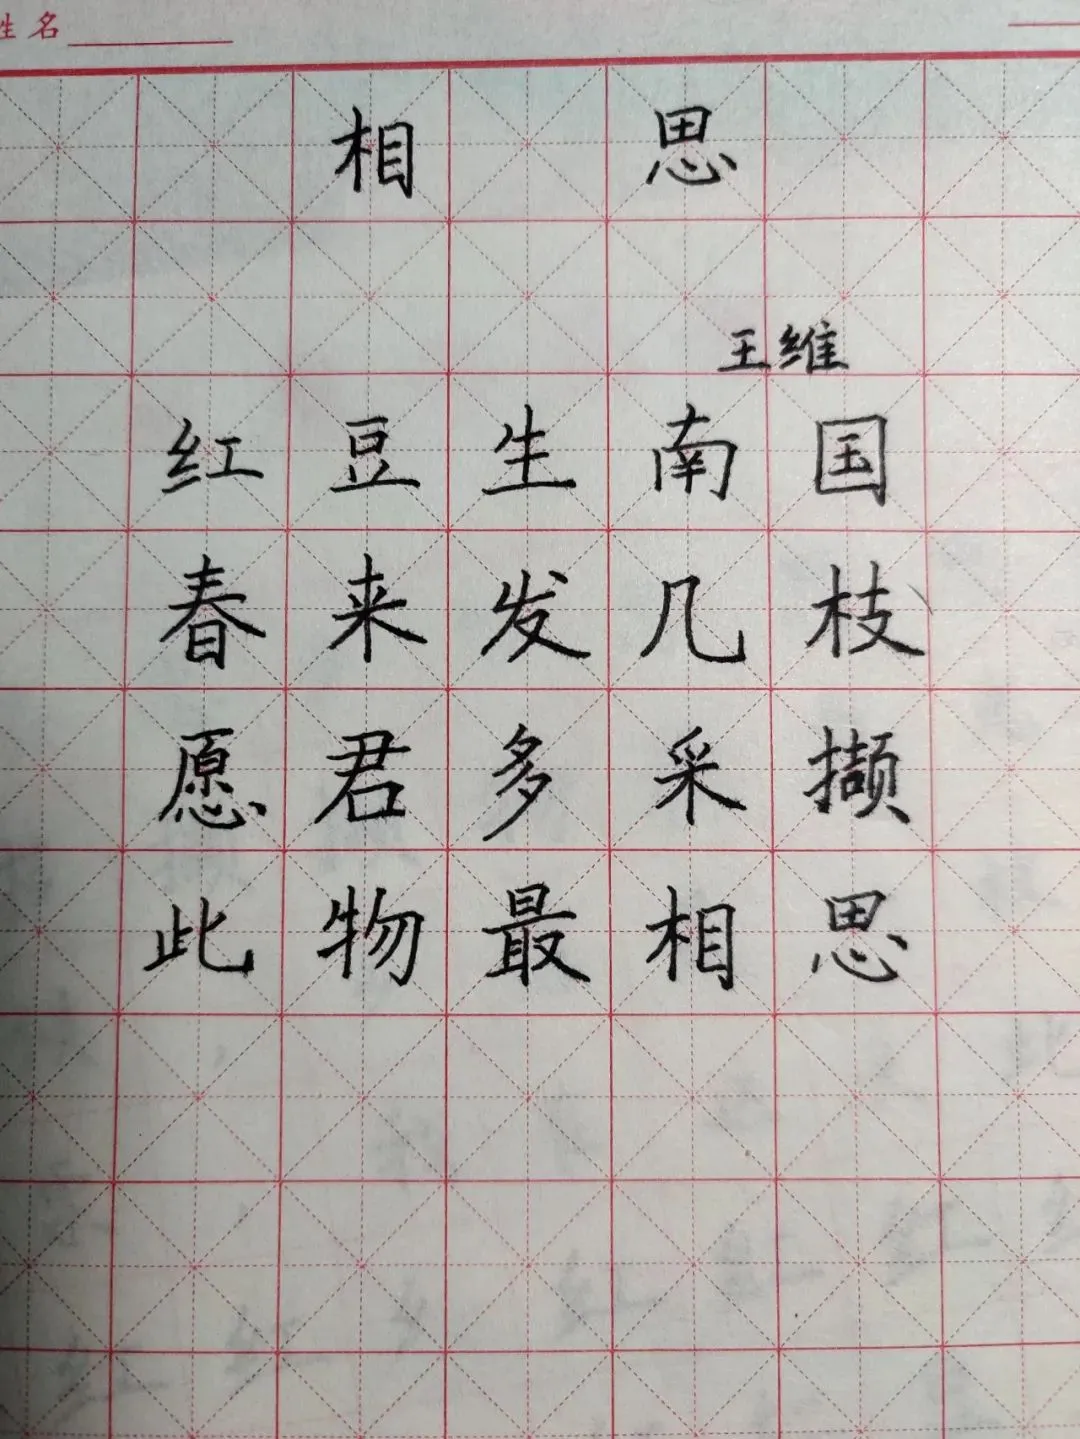 姓名
相思
王维
红豆生南国
春来发几枝
愿君多采撷
此物最相思